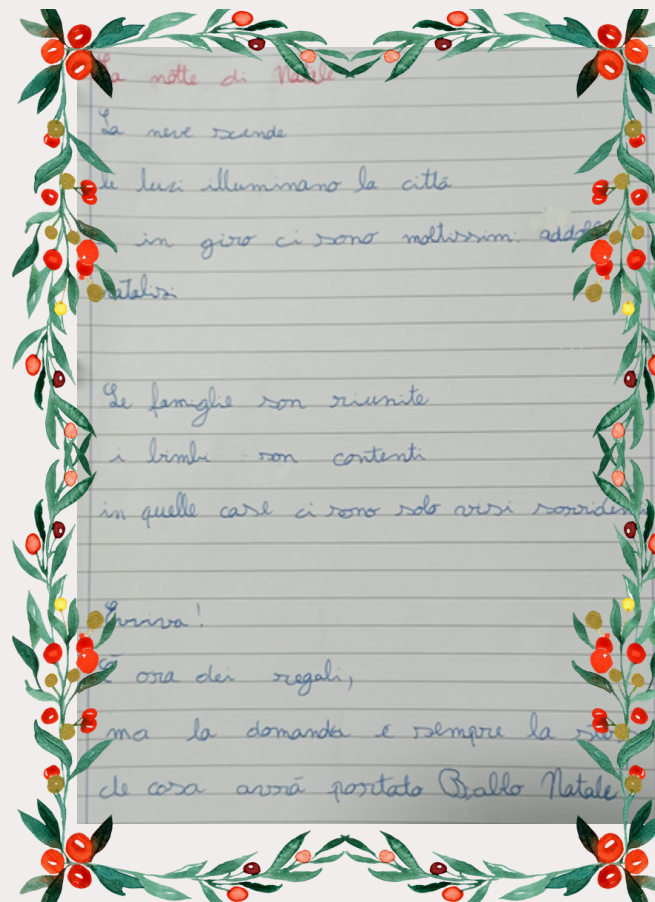 La notte di Natale
La neve scende
le luci illuminano la città
in giro ci sono moltissimi
natalizi
Le famiglie son riunite
i bimbi son contenti
in quelle case ci sono solo visi
Evviva!
È ora dei regali,
ma la domanda è sempre la
de cosa avrà portato Babbo Natale